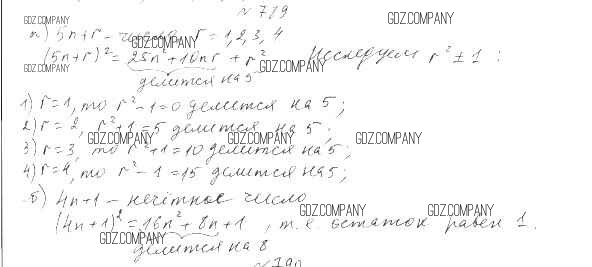 № 789
GDZ.COMPANY GDZ.COMPANY
а) 5n+r – число, r = 1, 2, 3, 4
GDZ.COMPANY
(5n+r)² = 25n²+10nr + r² Исследуем r² ± 1 :
GDZ.COMPANY GDZ.COMPANY
делится на 5
1) r=1, то r²-1=0 делится на 5;
2) r=2, r²+1=5 делится на 5;
GDZ.COMPANY GDZ.COMPANY GDZ.COMPANY
3) r=3, то r²+1=10 делится на 5;
4) r=4, то r²-1=15 делится на 5;
б) 4n+1 – нечётное число
GDZ.COMPANY GDZ.COMPANY
(4n+1)² = 16n²+8n+1, т.е. остаток равен 1.
GDZ.COMPANY
делится на 8
№ 790